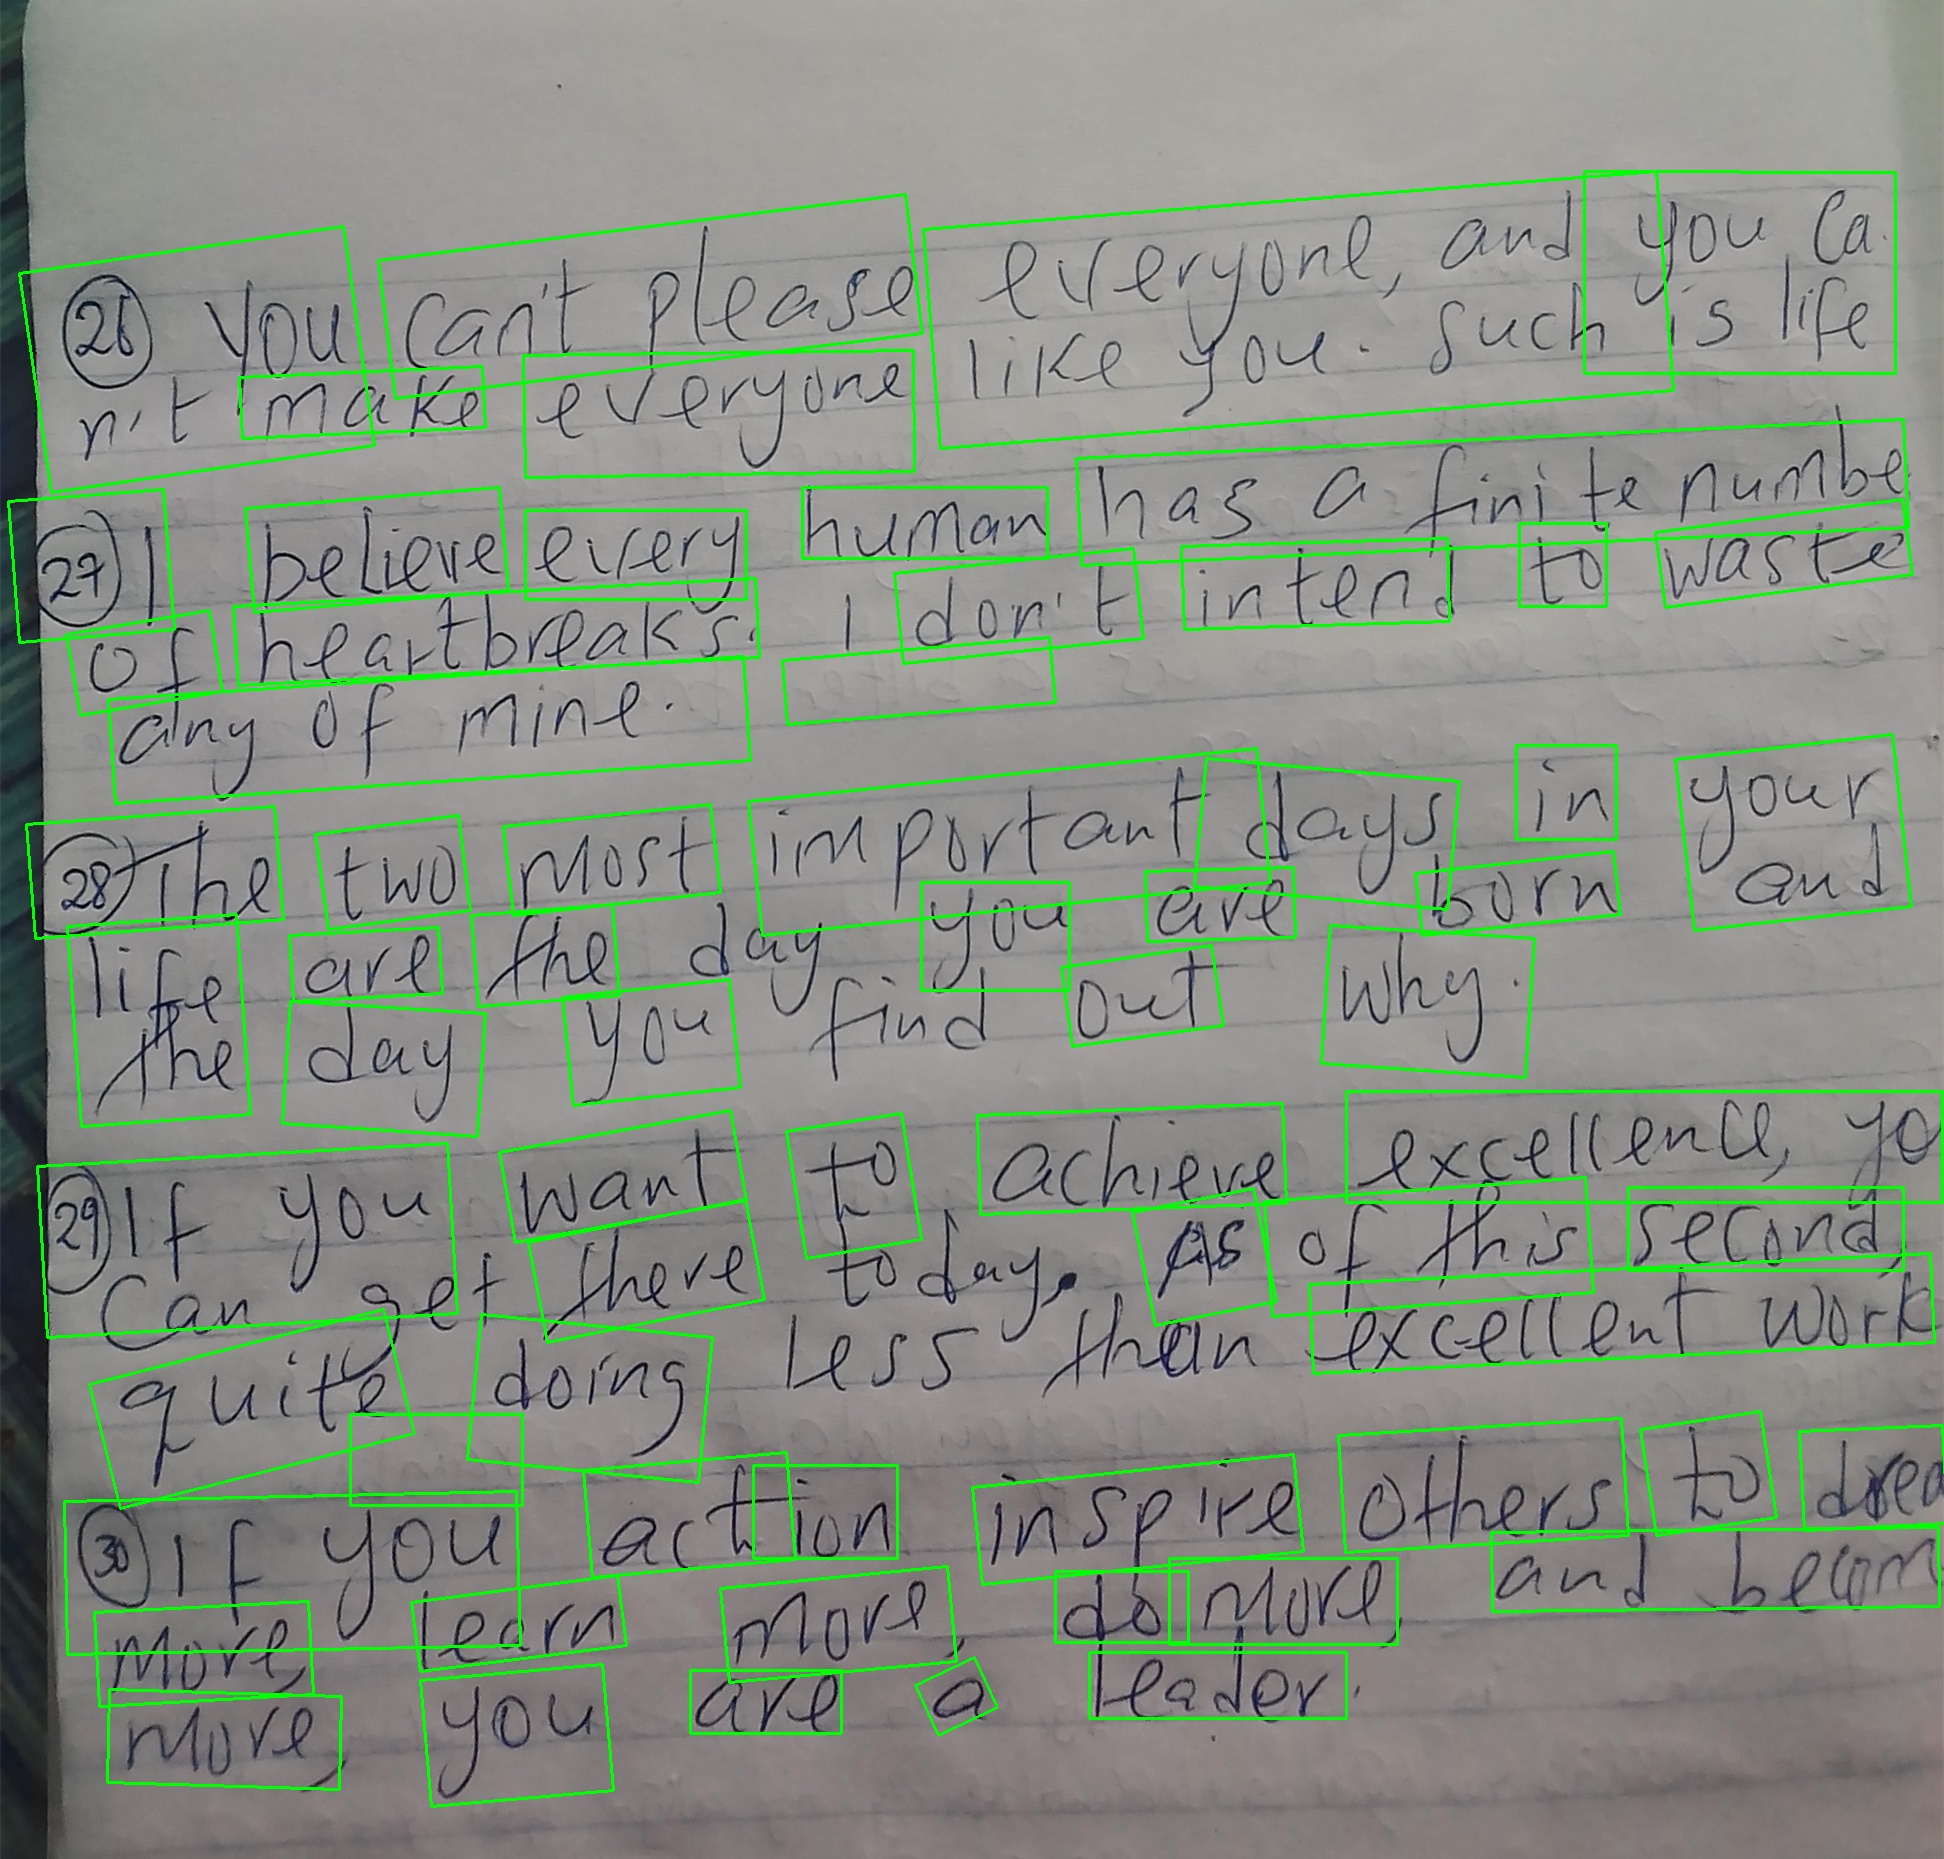 26 You can't please everyone, and you ca
n't make everyone like you. Such is life
27 I believe every human has a finite numbe
of heartbreaks. I don't intend to waste
any of mine.
28 The two most important days in your
life are the day you are born and
the day you find out why.
29 If you want to achieve excellence, yo
Can get there today. As of this second,
quite doing less than excellent work
30 If you action inspire others to drea
more, learn more, do more, and becom
more, you are a leader.